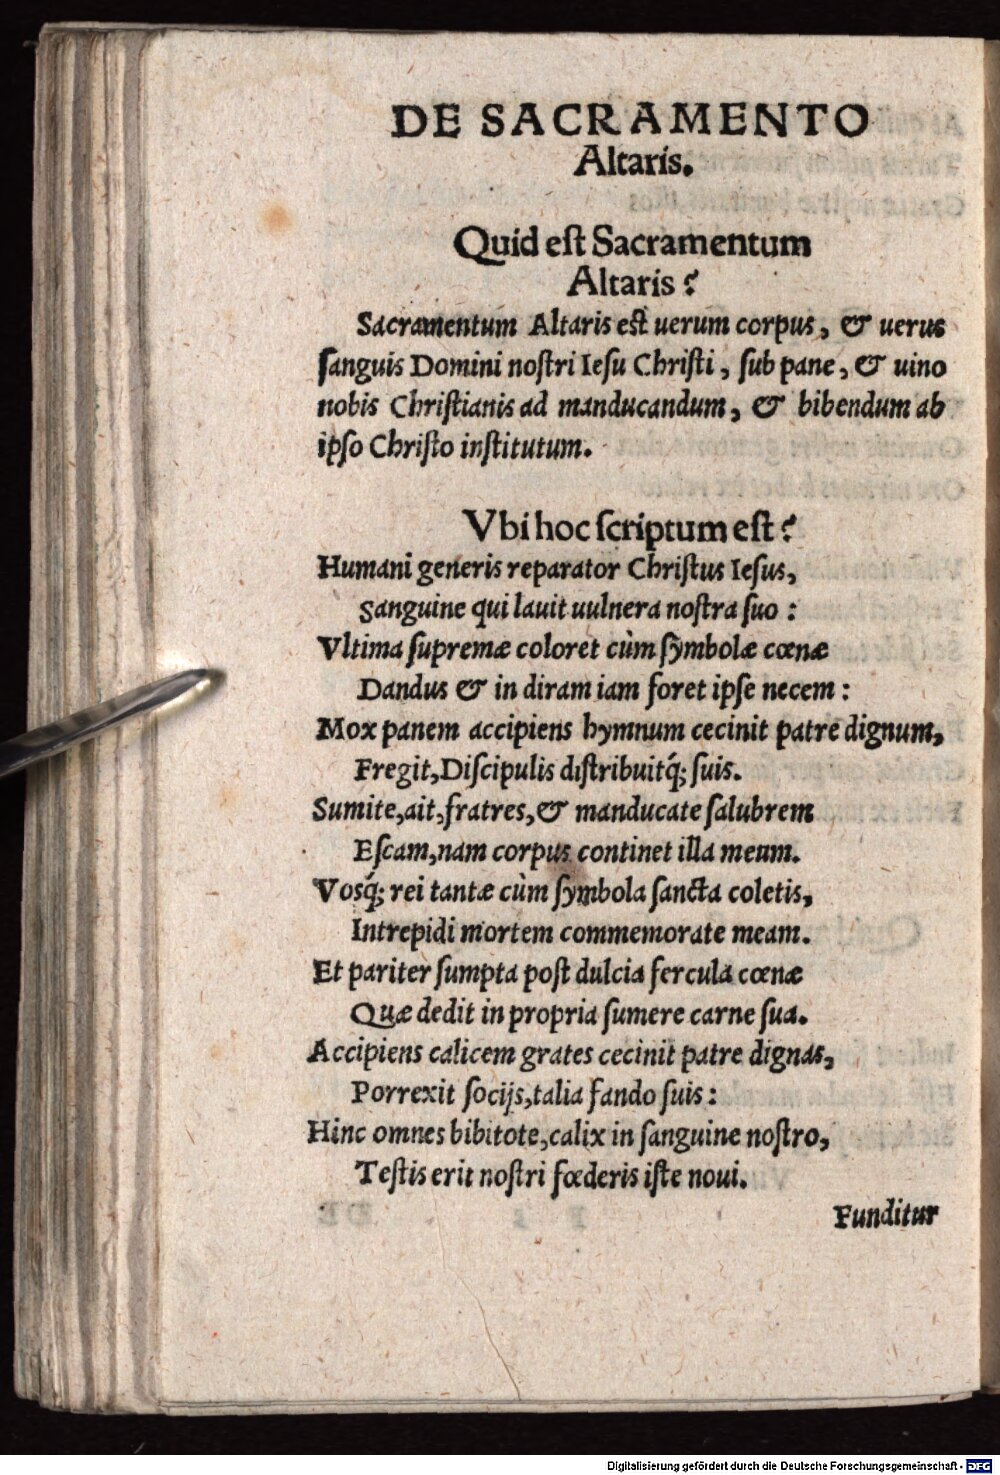 DE SACRAMENTO
Altaris.
Quid eſt Sacramentum
Altaris?
Sacramentum Altaris est uerum corpus, & uerus
ſanguis Domini noſtri Ieſu Chriſti, ſub pane, & uino
nobis Chriſtianis ad manducandum, & bibendum ab
ipſo Chriſto inſtitutum.
Vbi hoc ſcriptum eſt?
Humani generis reparator Chriſtus Ieſus,
Sanguine qui lauit uulnera noſtra ſuo:
Vltima ſupremæ coloret cùm ſymbolæ cœnæ
Dandus & in diram iam foret ipſe necem:
Mox panem accipiens hymnum cecinit patre dignum,
Fregit, Diſcipulis diſtribuitq́; ſuis.
Sumite, ait, fratres, & manducate ſalubrem
Eſcam, nam corpus continet illa meum.
Vosq́; rei tantæ cùm ſymbola ſancta coletis,
Intrepidi mortem commemorate meam.
Et pariter ſumpta poſt dulcia fercula cœnæ
Quæ dedit in propria ſumere carne ſua.
Accipiens calicem grates cecinit patre dignas,
Porrexit ſocijs, talia fando ſuis:
Hinc omnes bibitote, calix in ſanguine noſtro,
Teſtis erit noſtri fœderis iſte noui.
Funditur
Digitalisierung gefördert durch die Deutsche Forschungsgemeinschaft - DFG